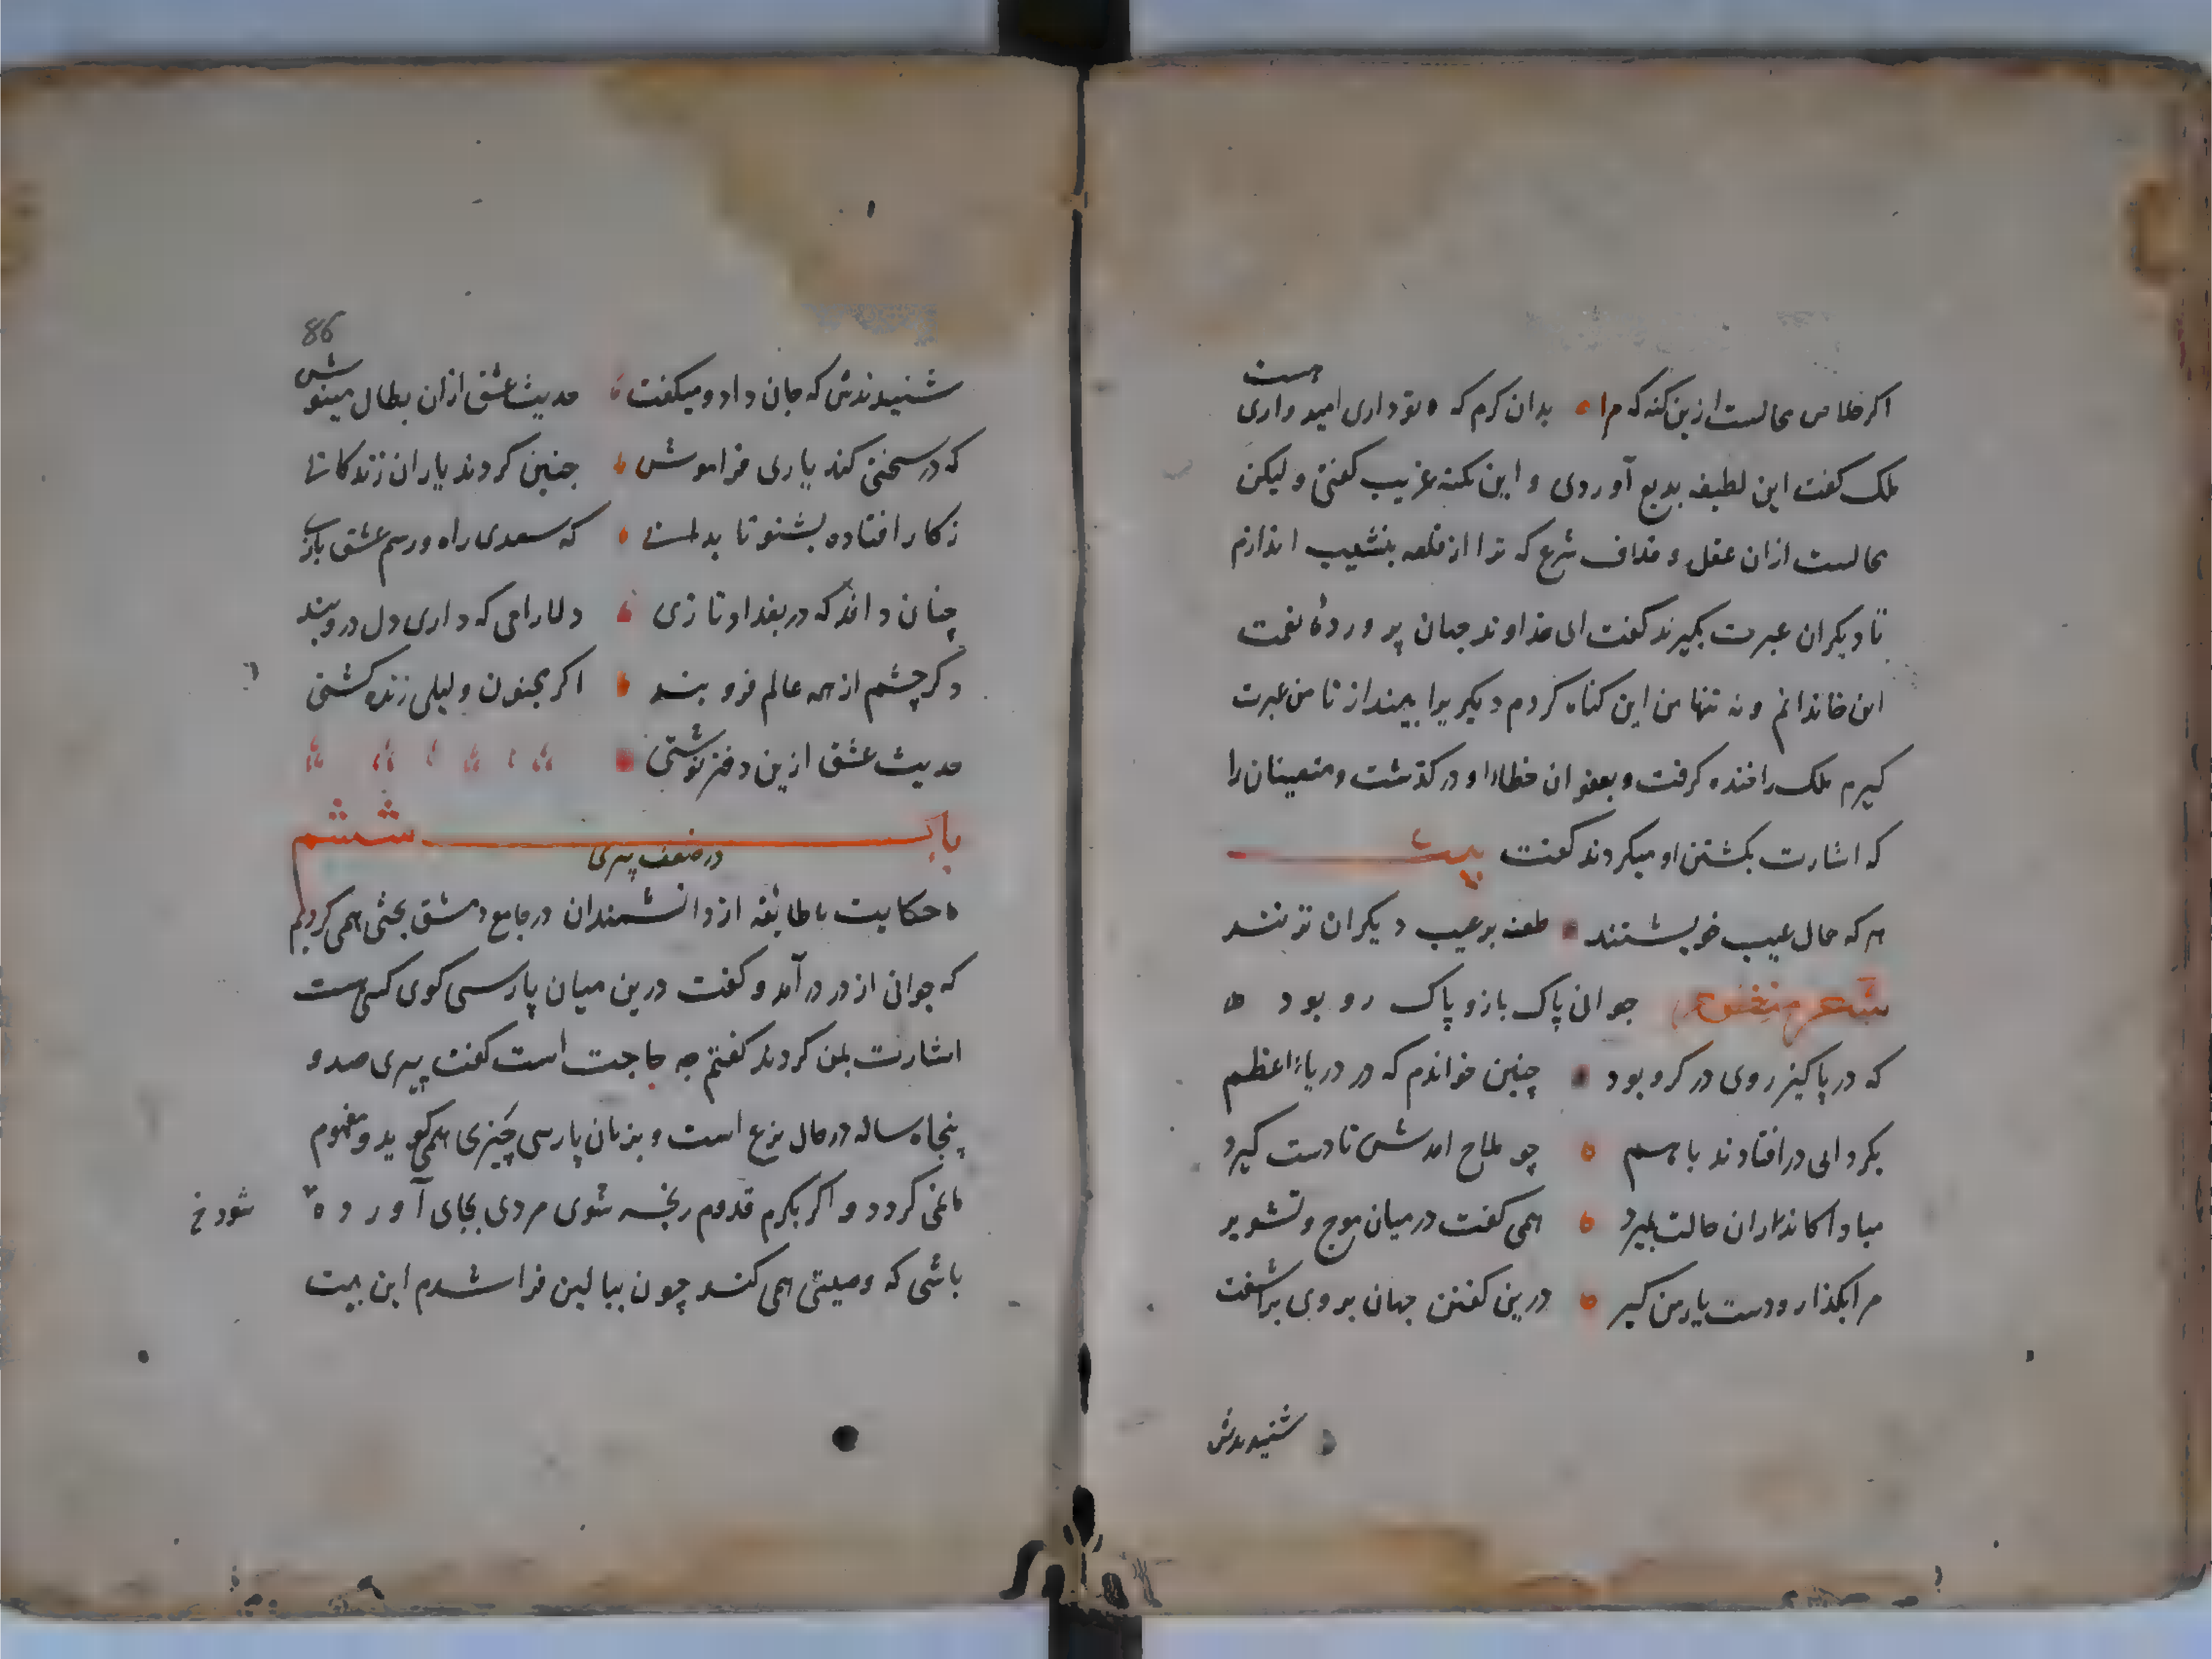 اکر خلاص محالست ازین کنه که مرا بدان کرم که تو داری امیدواری هست
ملک کفت این لطیفه بدیع آوردی و این نکته غریب کفتی ولیکن
محالست ازان عقل و خلاف شرع که ترا از قلعه بنشیب اندازم
تا دیکران عبرت بکیرند کفت ای خداوند جهان پرورده نعمت
این خاندانم و نه تنها من این کناه کردم دیکریرا بینداز تا من عبرت
کیرم ملک را خنده کرفت و بعفو از خطا او درکذشت و متعینان را
که اشارت بکشتن او میکردند کفت بیت
هرکه حمال عیب خویشتنند طعنه بر عیب دیکران نزنند
شعر جوانی پاک باز و پاک رو بود
که در پاکیزروی در کرو بود چنین خواندم که در دریاء اعظم
بکردابی درافتادند باهم چو ملاح امدش تا دست کیرد
مبادا کاندران حالت بمیرد همی کفت درمیان موج و تشویر
مرا بکذار و دست یار من کیر درین کفتن جهان بروی براشفت
شنیدندش
86
شنیدندش که جان داد و میکفت حدیث عشق ازان بطال مینوش
که در سختی کند یاری فراموش چنین کردند یاران زندکانی
زکار افتاده بشنو تا بدانی که سعدی راه و رسم عشق بازی
چنان داند که در بغداد تازی دلارامی که داری دل درو بند
دکر چشم از همه عالم فروبند اکر مجنون و لیلی زنده کشتی
حدیث عشق ازین دفتر نوشتی
باب ششم
در ضعف پیری
حکایت با طایفه از دانشمندان در جامع دمشق بحثی همی کردیم
که جوانی از در درآمد و کفت درین میان پارسی کوی کسی هست
اشارت بمن کردند کفتم چه حاجت است کفت پیری صد و
پنجاه ساله در حال نزع است و بزبان پارسی چیزی همی کوید و مفهوم
ما نمی کردد و اکر بکرم قدوم رنجه شوی مردی بجای آورده
شود خ
باشی که وصیتی همی کند چون ببالین فرا شدم این بیت